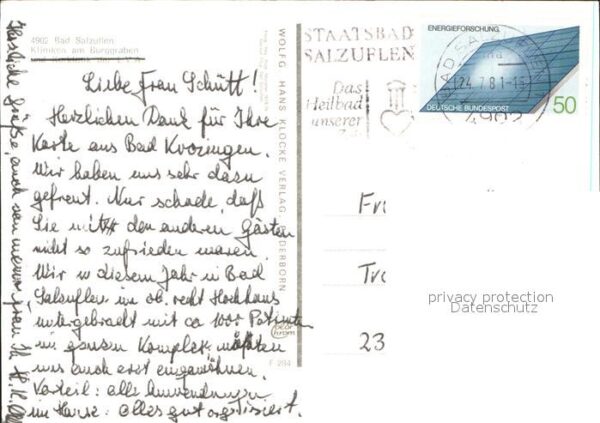 4902 Bad Salzuflen
Kliniken am Burggraben
Liebe Frau Schütt!
Herzlichen Dank für Ihre
Karte aus Bad Krozingen.
Wir haben uns sehr dazu
gefreut. Nur schade, daß
Sie mit den anderen Gästen
nicht so zufrieden waren.
Wir w in diesem Jahr in Bad
Salzuflen im ob. recht Hochhaus
untergebracht mit ca 1000 Patienten
im ganzen Komplex, mußten
uns auch erst eingewöhnen.
Vorteil: alle Anwendungen
im Hause: alles gut organisiert.
Herzliche Grüße, auch von meiner Frau Ihr H. K.
WOLFG. HANS KLOCKE VERLAG, PADERBORN
color
chrom
F 284
STAATSBAD
SALZUFLEN
Das
Heilbad
unserer
Zeit
BAD SALZUFLEN
24.7.81-15
4902
ENERGIEFORSCHUNG
DEUTSCHE BUNDESPOST
50
Fr
Tr
23
privacy protection
Datenschutz